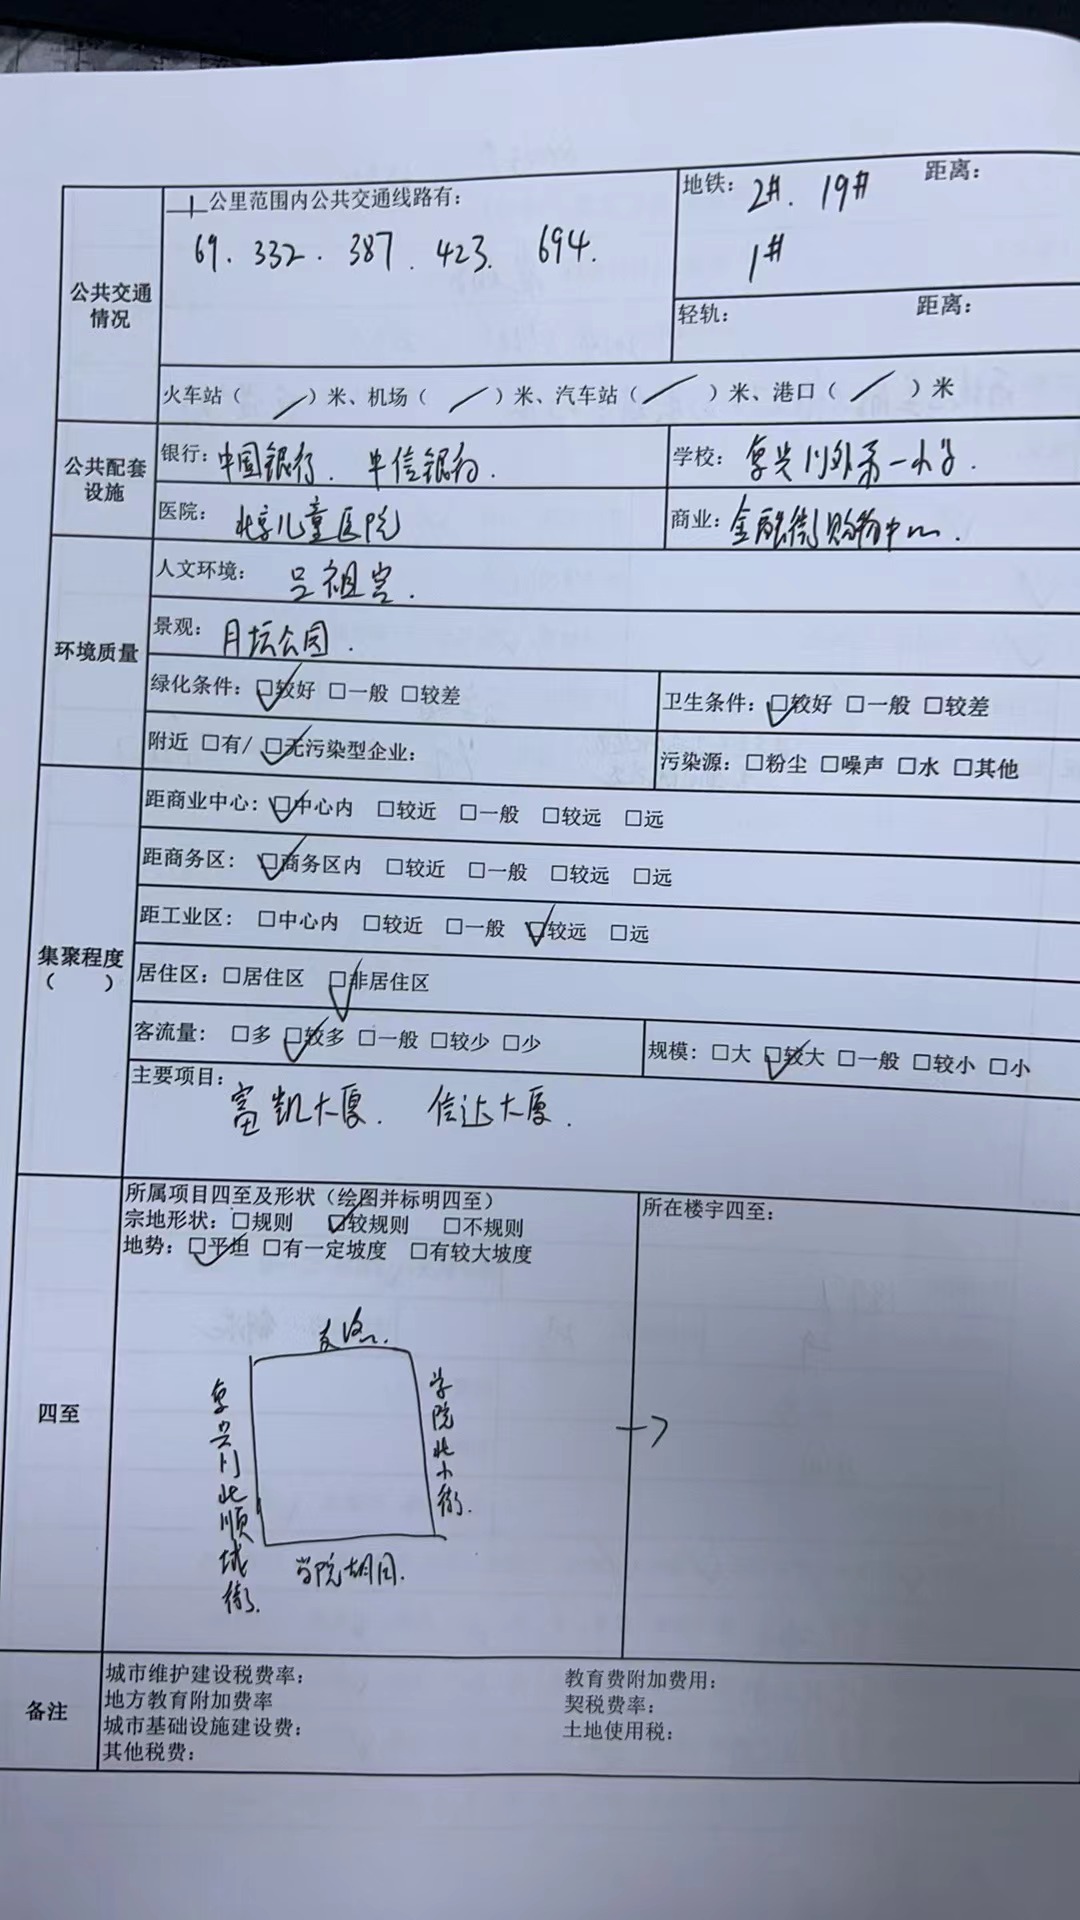 公共交通情况
1公里范围内公共交通线路有:
69. 332. 387. 423. 694.
地铁: 2#. 19# 距离:
1#
轻轨: 距离:
火车站( / )米、机场( / )米、汽车站( / )米、港口( / )米
公共配套设施
银行: 中国银行. 中信银行.
学校: 复兴门外第一小学.
医院: 北京儿童医院
商业: 金融街购物中心.
环境质量
人文环境: 吕祖宫.
景观: 月坛公园.
绿化条件: ☑较好 □一般 □较差
卫生条件: ☑较好 □一般 □较差
附近 □有/ ☑无污染型企业:
污染源: □粉尘 □噪声 □水 □其他
集聚程度
( )
距商业中心: ☑中心内 □较近 □一般 □较远 □远
距商务区: ☑商务区内 □较近 □一般 □较远 □远
距工业区: □中心内 □较近 □一般 ☑较远 □远
居住区: □居住区 ☑非居住区
客流量: □多 ☑较多 □一般 □较少 □少
规模: □大 ☑较大 □一般 □较小 □小
主要项目:
富凯大厦. 信达大厦.
四至
所属项目四至及形状(绘图并标明四至)
宗地形状: □规则 ☑较规则 □不规则
地势: ☑平坦 □有一定坡度 □有较大坡度
所在楼宇四至:
支路.
复兴门北顺城街.
学院北小街.
学院胡同.
→
备注
城市维护建设税费率: 教育费附加费用:
地方教育附加费率 契税费率:
城市基础设施建设费: 土地使用税:
其他税费: